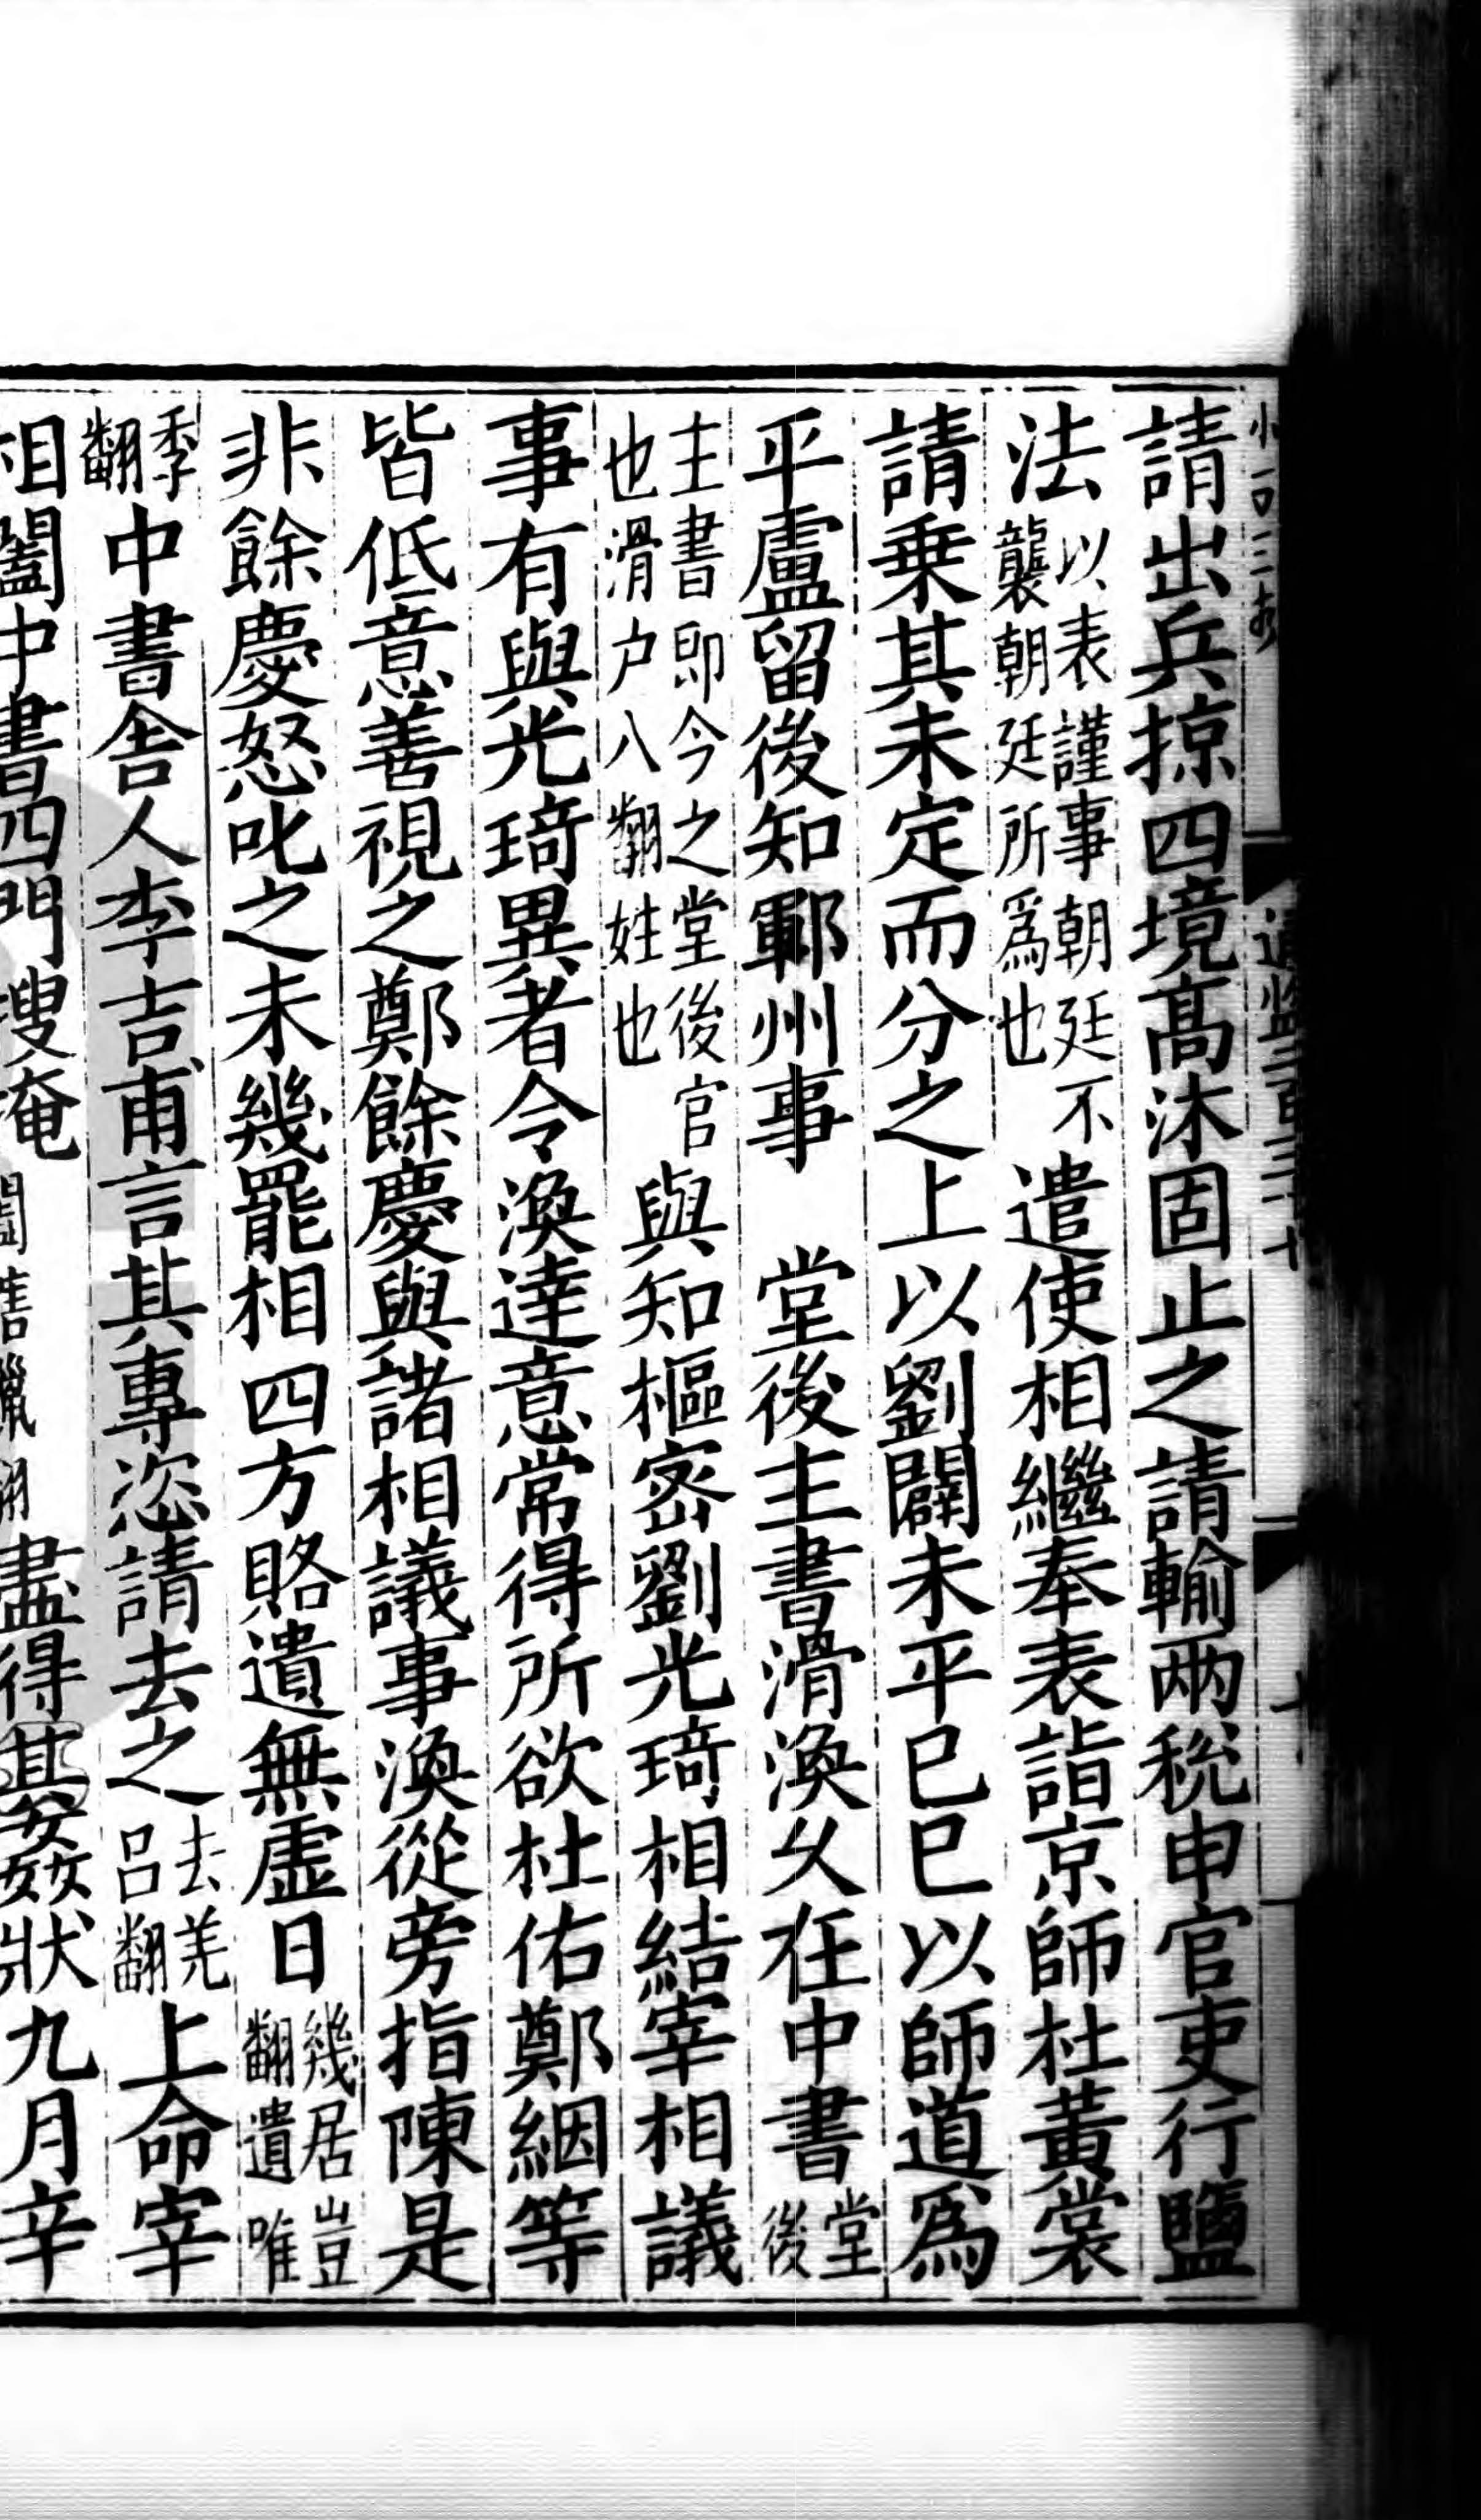 請出兵掠四境髙沐固止之請輸兩稅申官吏行鹽
法以表謹事朝廷不襲朝廷所爲也遣使相繼奉表詣京師杜黃裳
請乗其未定而分之上以劉闢未平已巳以師道爲
平盧留後知鄆州事 堂後主書滑渙久在中書堂後
主書即今之堂後官也滑户八翻姓也與知樞密劉光琦相結宰相議
事有與光琦異者令渙達意常得所欲杜佑鄭絪等
皆低意善視之鄭餘慶與諸相議事渙從旁指陳是
非餘慶怒叱之未幾罷相四方賂遺無虛日幾居豈翻遺唯
季翻中書舎人李吉甫言其專恣請去之去羌呂翻上命宰
相闔中書四門搜掩盡得其姦狀九月辛